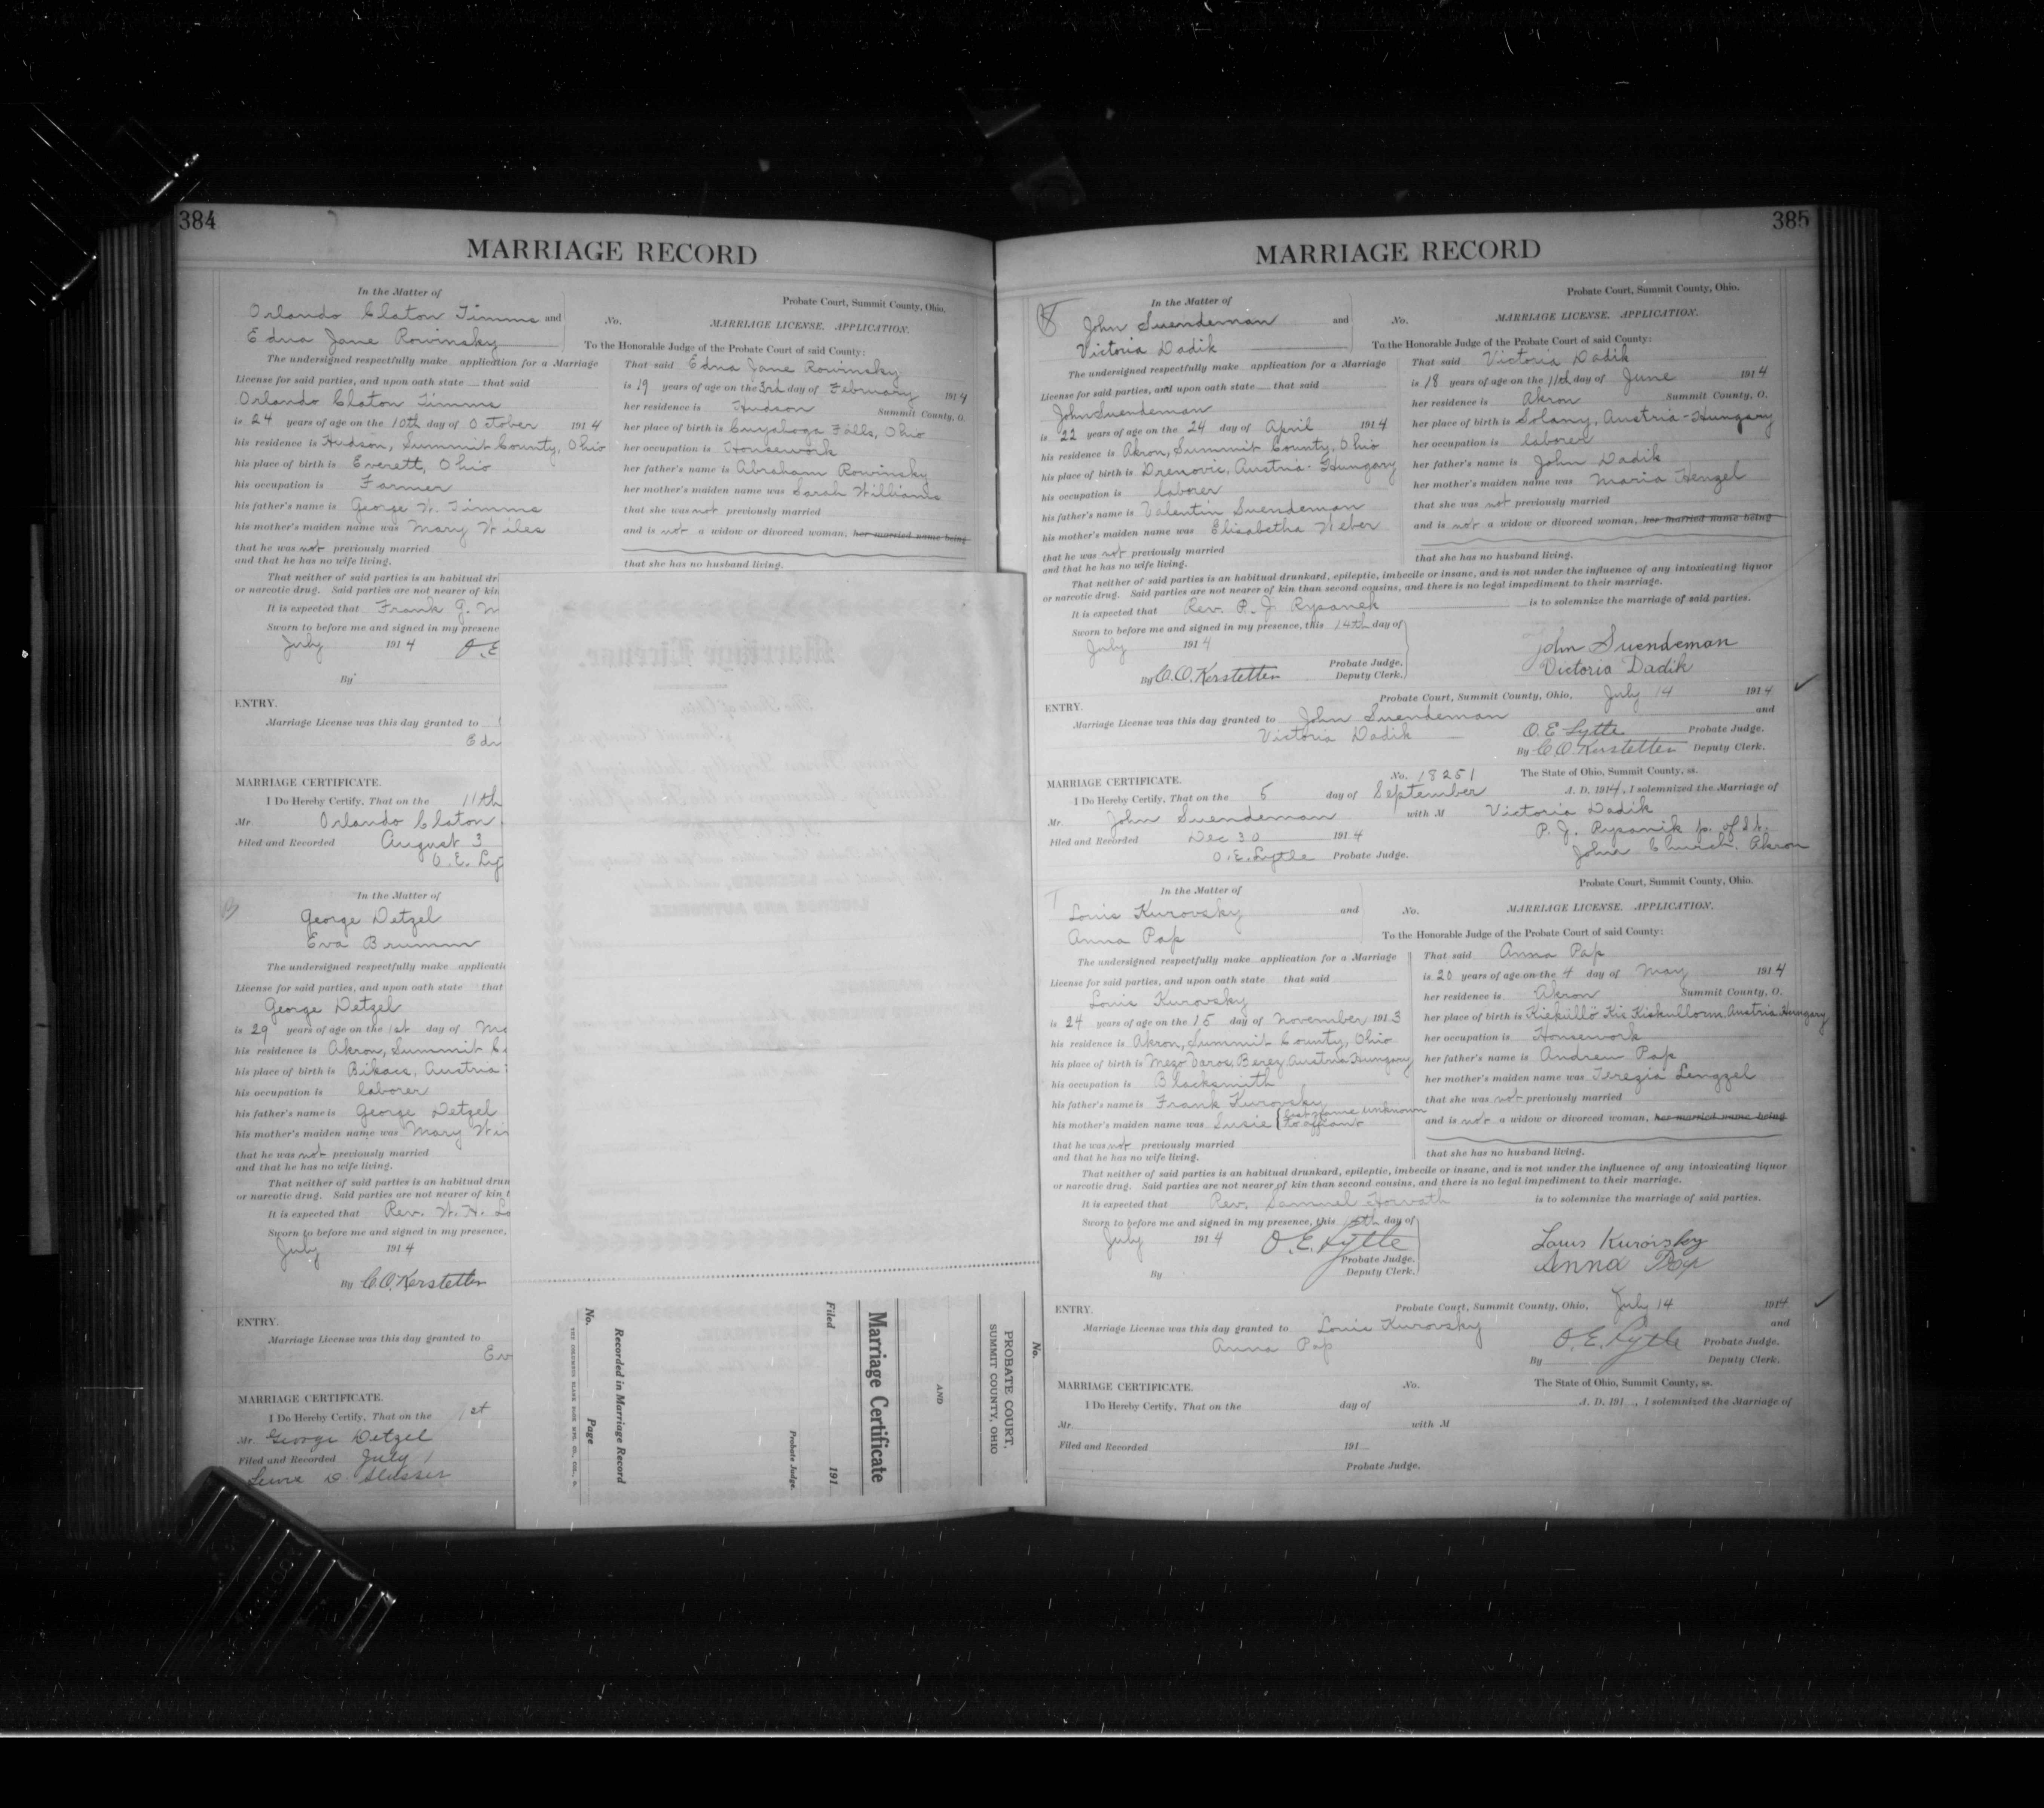 384
MARRIAGE RECORD
In the Matter of
Orlando Claton Timms and
Edna Jane Rowinsky
No.
Probate Court, Summit County, Ohio.
MARRIAGE LICENSE. APPLICATION.
To the Honorable Judge of the Probate Court of said County:
The undersigned respectfully make application for a Marriage
License for said parties, and upon oath state that said
Orlando Claton Timms
is 24 years of age on the 10th day of October 1914
his residence is Hudson, Summit County, Ohio
his place of birth is Everett, Ohio
his occupation is Farmer
his father's name is George W. Timms
his mother's maiden name was Mary Wiles
that he was not previously married
and that he has no wife living.
That said Edna Jane Rowinsky
is 19 years of age on the 3rd day of February 1914
her residence is Hudson Summit County, O.
her place of birth is Cuyahoga Falls, Ohio
her occupation is Housework
her father's name is Abraham Rowinsky
her mother's maiden name was Sarah Williams
that she was not previously married
and is not a widow or divorced woman, her married name being
that she has no husband living.
That neither of said parties is an habitual dr
or narcotic drug. Said parties are not nearer of kin
It is expected that Frank G.
Sworn to before me and signed in my presenc
July 1914 O.E
By
ENTRY.
Marriage License was this day granted to
Edn
MARRIAGE CERTIFICATE.
I Do Hereby Certify, That on the 11th
Mr. Orlando Claton
Filed and Recorded August 3
O. E. Ly
In the Matter of
George Detzel
Eva Brumm
The undersigned respectfully make applicati
License for said parties, and upon oath state that
George Detzel
is 29 years of age on the 1st day of Ma
his residence is Akron, Summit C
his place of birth is Bikacs, Austria
his occupation is laborer
his father's name is George Detzel
his mother's maiden name was Mary
that he was not previously married
and that he has no wife living.
That neither of said parties is an habitual drun
or narcotic drug. Said parties are not nearer of kin t
It is expected that Rev. W. H. Lo
Sworn to before me and signed in my presence,
July 1914
By C.O. Kerstetter
ENTRY.
Marriage License was this day granted to
Ev
MARRIAGE CERTIFICATE.
I Do Hereby Certify, That on the 1st
Mr. George Detzel
Filed and Recorded July 1
Lewis D. Slusser
Marriage License.
No. Page
THE COLUMBUS BLANK BOOK MFG. CO., COL., O.
Recorded in Marriage Record
Probate Judge.
Filed 191
Marriage Certificate
AND
PROBATE COURT,
SUMMIT COUNTY, OHIO
No.
385
MARRIAGE RECORD
In the Matter of
John Suendeman and
Victoria Dadik
No.
Probate Court, Summit County, Ohio.
MARRIAGE LICENSE. APPLICATION.
To the Honorable Judge of the Probate Court of said County:
The undersigned respectfully make application for a Marriage
License for said parties, and upon oath state that said
John Suendeman
is 22 years of age on the 24 day of April 1914
his residence is Akron, Summit County, Ohio
his place of birth is Drenovic, Austria-Hungary
his occupation is laborer
his father's name is Valentin Suendeman
his mother's maiden name was Elisabetha Weber
that he was not previously married
and that he has no wife living.
That said Victoria Dadik
is 18 years of age on the 11th day of June 1914
her residence is Akron Summit County, O.
her place of birth is Solany, Austria-Hungary
her occupation is laborer
her father's name is John Dadik
her mother's maiden name was Maria Henzel
that she was not previously married
and is not a widow or divorced woman, her married name being
that she has no husband living.
That neither of said parties is an habitual drunkard, epileptic, imbecile or insane, and is not under the influence of any intoxicating liquor
or narcotic drug. Said parties are not nearer of kin than second cousins, and there is no legal impediment to their marriage.
It is expected that Rev. P. J. Rypanek is to solemnize the marriage of said parties.
Sworn to before me and signed in my presence, this 14th day of
July 1914
John Suendeman
Victoria Dadik
Probate Judge.
By C.O. Kerstetter Deputy Clerk.
ENTRY.
Probate Court, Summit County, Ohio, July 14 1914
Marriage License was this day granted to John Suendeman and
Victoria Dadik
O.E. Lytle Probate Judge.
By C O Kerstetter Deputy Clerk.
MARRIAGE CERTIFICATE.
No. 18251 The State of Ohio, Summit County, ss.
I Do Hereby Certify, That on the 5 day of September A. D. 1914, I solemnized the Marriage of
Mr. John Suendeman with M Victoria Dadik
Filed and Recorded Dec 30 1914
P. J. Rypanik p. of St.
Johns Church, Akron
O. E. Lytle Probate Judge.
In the Matter of
Louis Kurovsky and
Anna Pap
No.
Probate Court, Summit County, Ohio.
MARRIAGE LICENSE. APPLICATION.
To the Honorable Judge of the Probate Court of said County:
The undersigned respectfully make application for a Marriage
License for said parties, and upon oath state that said
Louis Kurovsky
is 24 years of age on the 15 day of November 1913
his residence is Akron, Summit County, Ohio
his place of birth is Mezo Varos, Bereg, Austria Hungary
his occupation is Blacksmith
his father's name is Frank Kurovsky
his mother's maiden name was Susie { last name unknown
to affiant
that he was not previously married
and that he has no wife living.
That said Anna Pap
is 20 years of age on the 4 day of May 1914
her residence is Akron Summit County, O.
her place of birth is Kisküllö Kis Kiskullorm, Austria Hungary
her occupation is Housework
her father's name is Andrew Pap
her mother's maiden name was Terezia Lengzel
that she was not previously married
and is not a widow or divorced woman, her married name being
that she has no husband living.
That neither of said parties is an habitual drunkard, epileptic, imbecile or insane, and is not under the influence of any intoxicating liquor
or narcotic drug. Said parties are not nearer of kin than second cousins, and there is no legal impediment to their marriage.
It is expected that Rev. Samuel Horvath is to solemnize the marriage of said parties.
Sworn to before me and signed in my presence, this day of
July 1914 O. E. Lytle
Probate Judge.
By Deputy Clerk.
Louis Kurovsky
Anna Pap
ENTRY.
Probate Court, Summit County, Ohio, July 14 1914
Marriage License was this day granted to Louis Kurovsky and
Anna Pap
O. E. Lytle Probate Judge.
By Deputy Clerk.
MARRIAGE CERTIFICATE.
No. The State of Ohio, Summit County, ss.
I Do Hereby Certify, That on the day of A. D. 191 , I solemnized the Marriage of
Mr. with M
Filed and Recorded 191
Probate Judge.